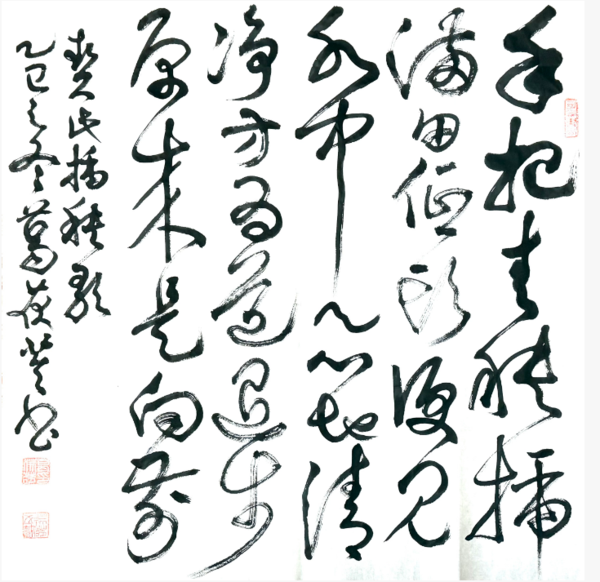 手把青秧插
满田低头便见
水中天心地清
净方为道退步
原来是向前
契此插秧歌
乙巳之冬葛茯苓书